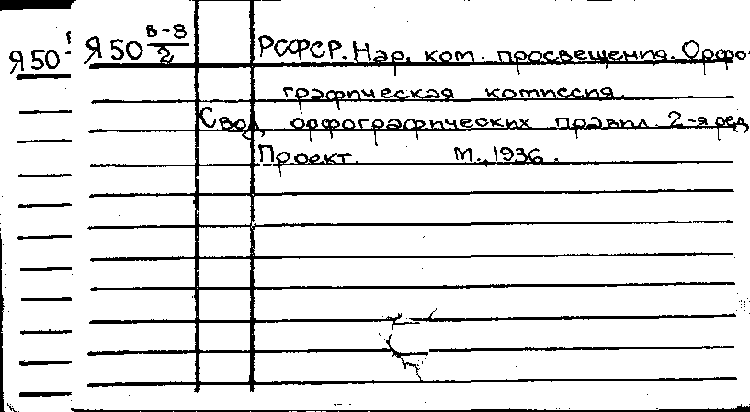 Я50
Я50 В-8/2 РСФСР. Нар. ком. просвещения. Орфо-
графическая комиссия.
Свод орфографических правил. 2-я ред.
Проект. М., 1936.